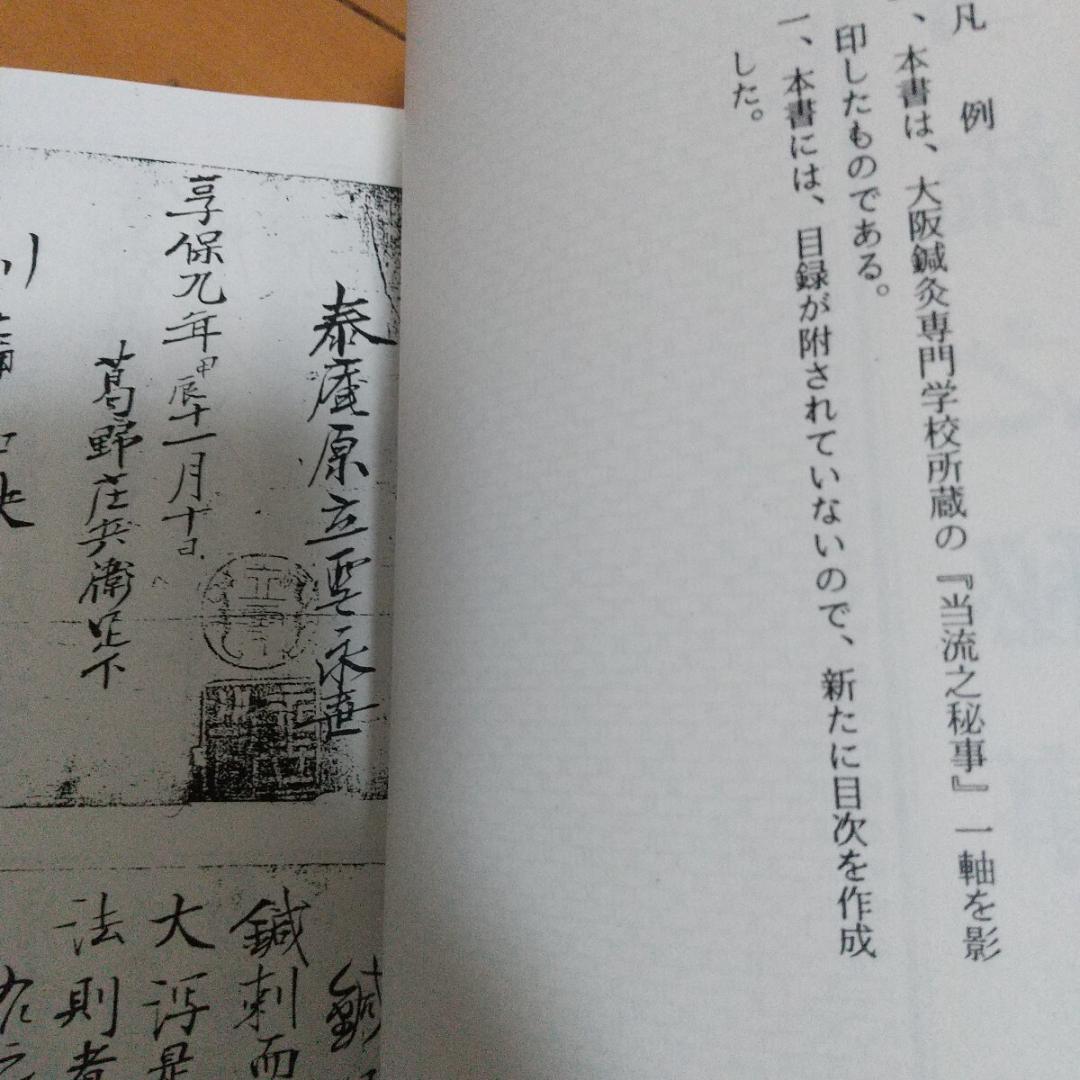 凡例
一、本書は、大阪鍼灸専門学校所蔵の『当流之秘事』一軸を影
印したものである。
一、本書には、目録が附されていないので、新たに目次を作成
した。
泰庵原立雲永世
享保九年甲辰十一月十日
葛野庄兵衛足下
鍼
鍼刺而
大瀉是
法則者